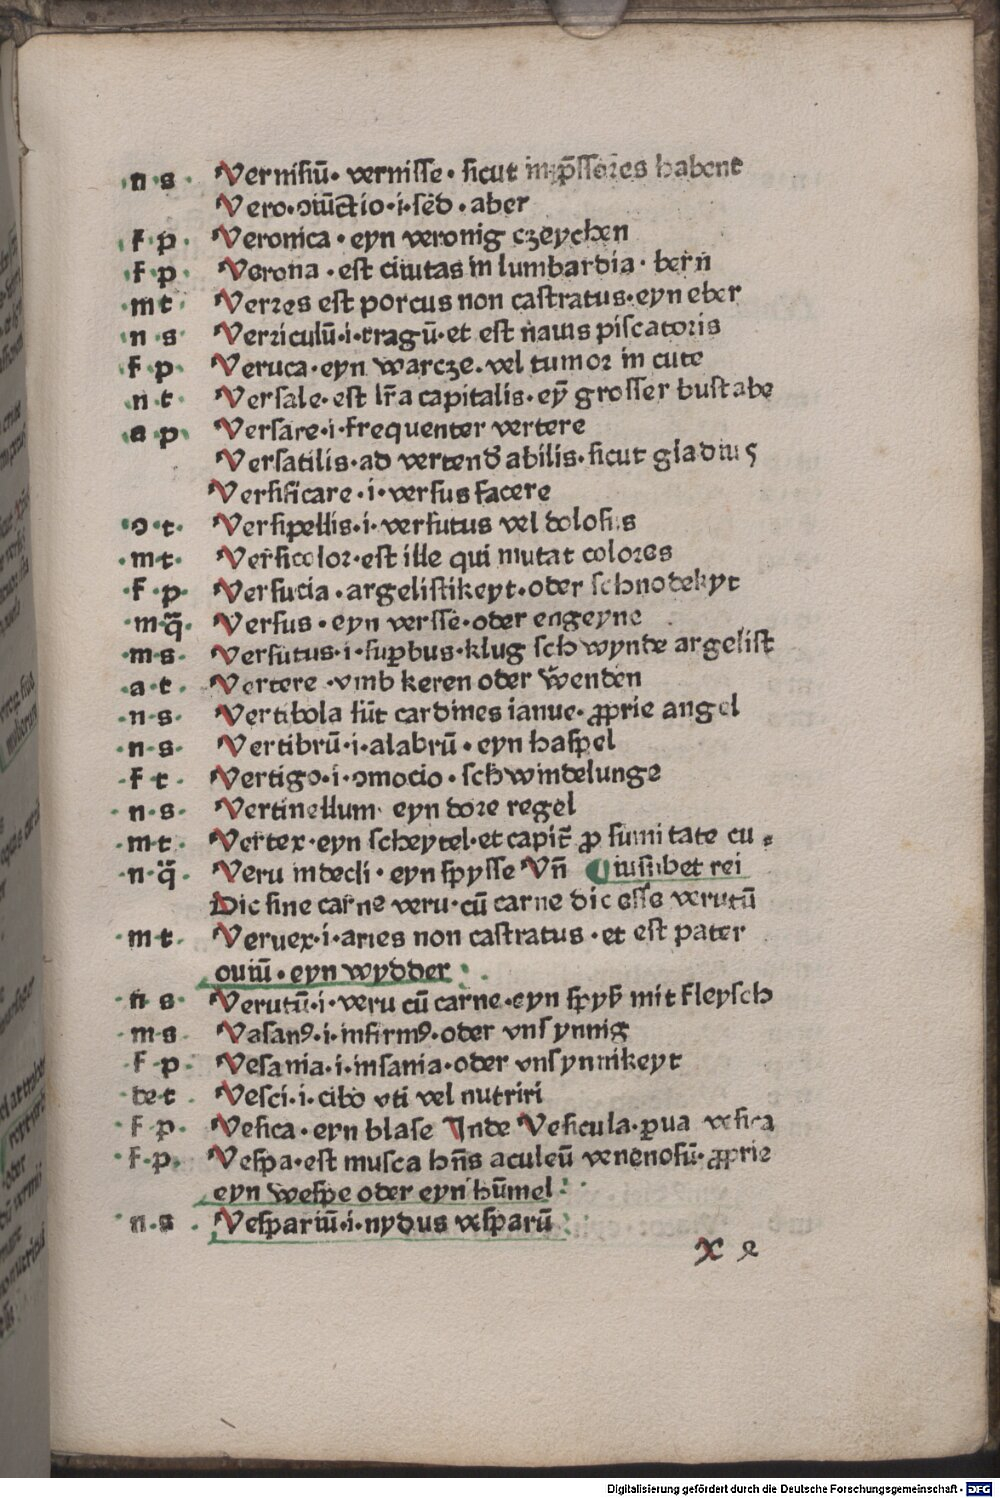 n s · Vernisiū· vernisse · sicut imp̄ssores habent
Vero·ↄiūctio·i·sēd·aber
f p · Veronica · eyn veronig czeychen
f p · Verona · est ciuitas in lumbardia · bern̄
m t · Verres est porcus non castratus·eyn eber
n s · Verriculū·i·tragū·et est nauis piscatoris
f p · Veruca·eyn warcze·vel tumor in cute
n t · Versale·est lr̄a capitalis·eȳ grosser bustabe
a p · Versare·i·frequenter vertere
Versatilis·ad vertend̄ abilis·sicut gladius
Versificare·i·versus facere
ↄ·t· Versipellis·i·versutus vel dolosus
m t· Versicolor·est ille qui mutat colores
f p· Versucia·argelistikeyt·oder schnodekyt
m·q̄· Versus·eyn versse·oder engeyne
m s· Versutus·i·suꝑbus·klug schwynde argelist
a·t· Vertere·vmb keren oder wenden
n s· Vertibola sūt cardines ianue·ꝓprie angel
n s· Vertibrū·i·alabrū·eyn haspel
f t· Vertigo·i·ↄmocio·schwindelunge
n·s· Vertinellum eyn dore regel
m t· Vertex·eyn scheytel·et capit̄ ꝓ sumitate cu⸗
n·q̄· Veru indecli·eyn spysse Vn̄ Cuiuslibet rei
Dic sine carne veru·cū carne dic esse verutū
m t· Veruex·i·aries non castratus·et est pater
ouiū·eyn wydder
n s· Verutū·i·veru cū carne·eyn spyß mit fleysch
m s· Vasanꝰ·i·infirmꝰ·oder vnsynnig
f p· Vesania·i·insania·oder vnsynnikeyt
de t· Vesci·i·cibo vti vel nutriri
f p· Vesica·eyn blase Inde Vesicula·ꝑua vesica
f·p· Vespa·est musca hn̄s aculeū venenosū·ꝓprie
eyn wespe oder eyn hūmel
n·s· Vespariū·i·nydus vesparū
X e
Digitalisierung gefördert durch die Deutsche Forschungsgemeinschaft · DFG